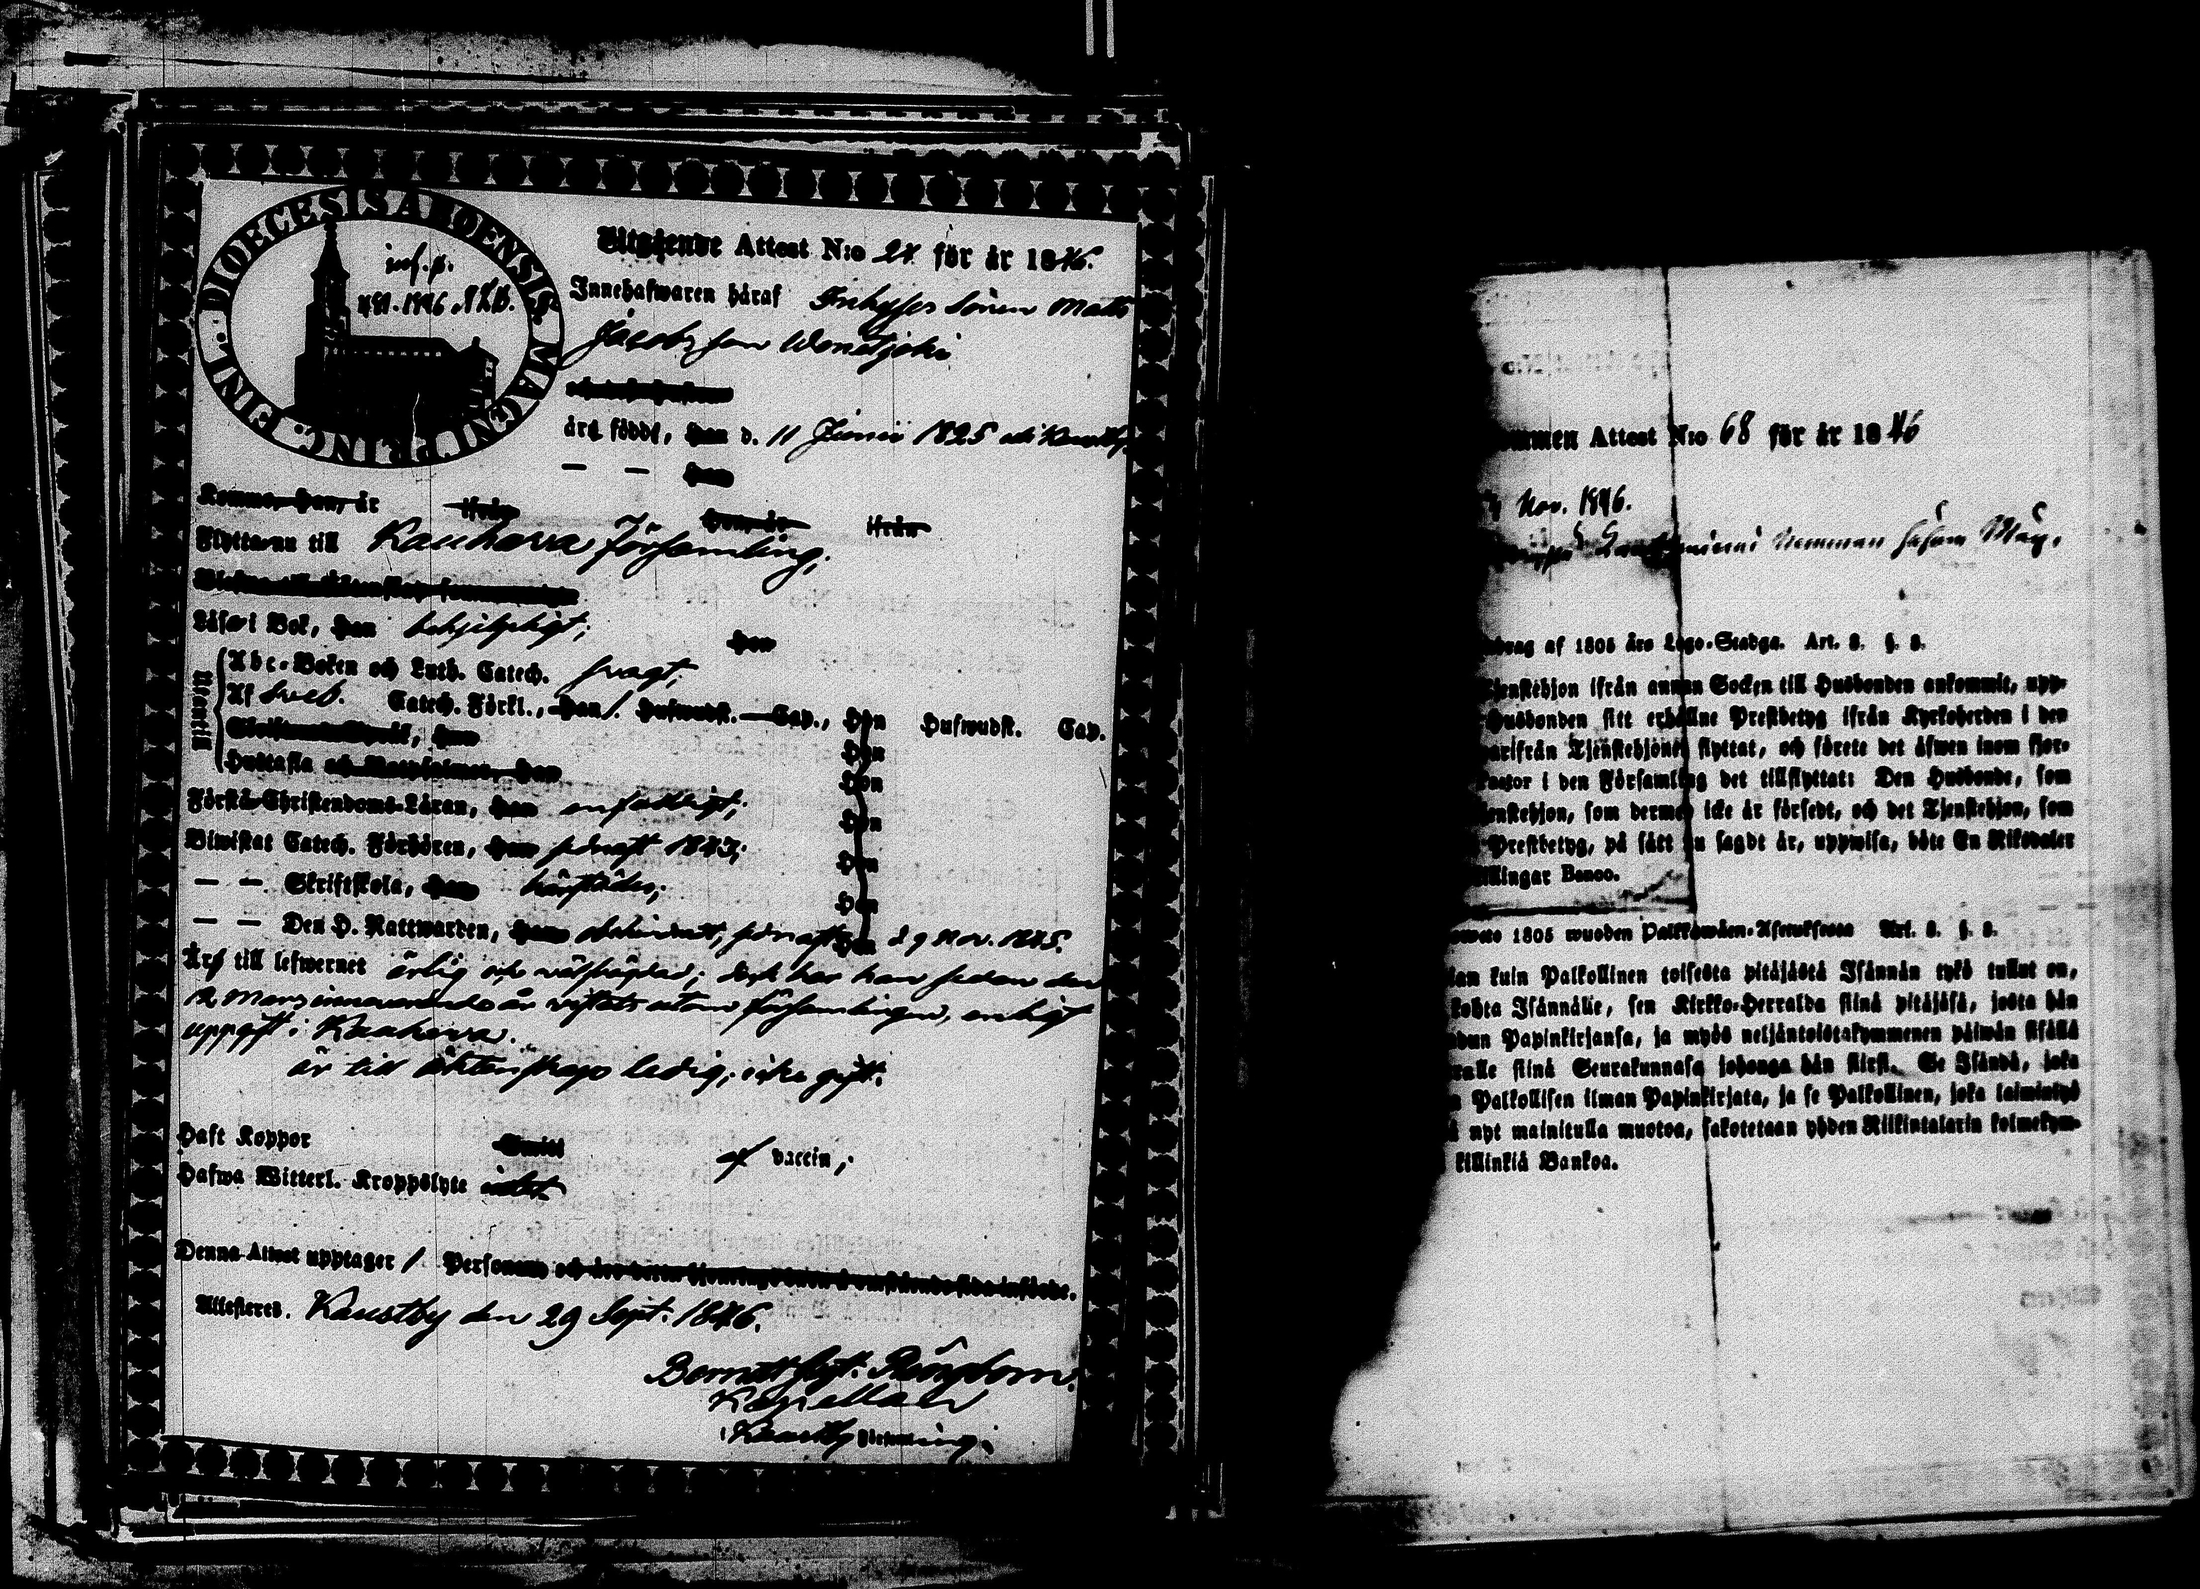 DIOECESIS ABOENSIS MAGNI PRINC. FINL.
inf. p.
1846
Utgående Attest N:o 24 för år 1846.
Innehafwaren häraf Inhyses Sonen Matts
Jacobsson
äro födde, han d. 11 Junii 1825 uti Kaustby.
— — hon
Komne, han, år ifrån hon, år ifrån
Flyttar nu till Kauhava församling,
Läser i Bok, han behjelpligt; hon
Utantill
Abc-Boken och Luth. Catech. svagt;
Af Sveb. Catech. Förkl., han Hufwudst. Cap., Hon Hufwudst. Cap.
han Hon
Hustafla och han Hon
Förstå Christendoms-Läran, han enfaldigt; Hon
Biwistat Catech. Förhören, han sednast 1843; Hon
— — Skriftskola, han härstädes; Hon
— — Den H. Nattwarden, han sednast Hon d 9 Nov. 1845.
Äro till lefwernet ärlig och välfrägdad; dock har han sedan den
12 Mars innevarande år vistats utom församlingen, enligt
uppgift i Kauhava.
är till äktenskap ledig; icke gift.
Haft Koppor af vaccin;
Hafwa Witterl. Kroppslyte intet
Denna Attest upptager 1 Personer, och
Attesteras. Kaustby den 29 Sept. 1846.
Kapellan
i Kaustby Församling.
ommen Attest N:o 68 för år 1846
Nov. 1846.
1805 års Lego-Stadga. Art. 8. §. 8.
Tjenstehjon ifrån annan Socken till Husbonden ankommit, upp-
Husbonden sitt erhållne Prestbetyg ifrån Kyrkoherden i den
warifrån Tjenstehjonet flyttat, och förete det äfwen inom fjor-
Pastor i den Församling det tillflyttat: Den Husbonde, som
enstehjon, som dermed icke är försedt, och det Tjenstehjon, som
Prestbetyg, på sätt nu sagdt är, uppwisa, böte En Riksdaler
illingar Banco.
1805 wuoden Palkkawäen-Asetuksesta Art. 8. §. 8.
an kuin Palkollinen toisesta pitäjästä Isännän tykö tullut on,
kohta Isännälle, sen Kirkko-Herralda siinä pitäjäsä, josta hän
dun Papinkirjansa, ja myös neljäntoistakymmenen päiwän sisällä
ralle siinä Seurakunnasa johonga hän siirsi. Se Isändä, joka
Palkollisen ilman Papinkirjata, ja se Palkollinen, joka laiminlyö
nyt mainitulla muotoa, sakotetaan yhden Riikintalarin kolmekym-
killinkiä Bankoa.